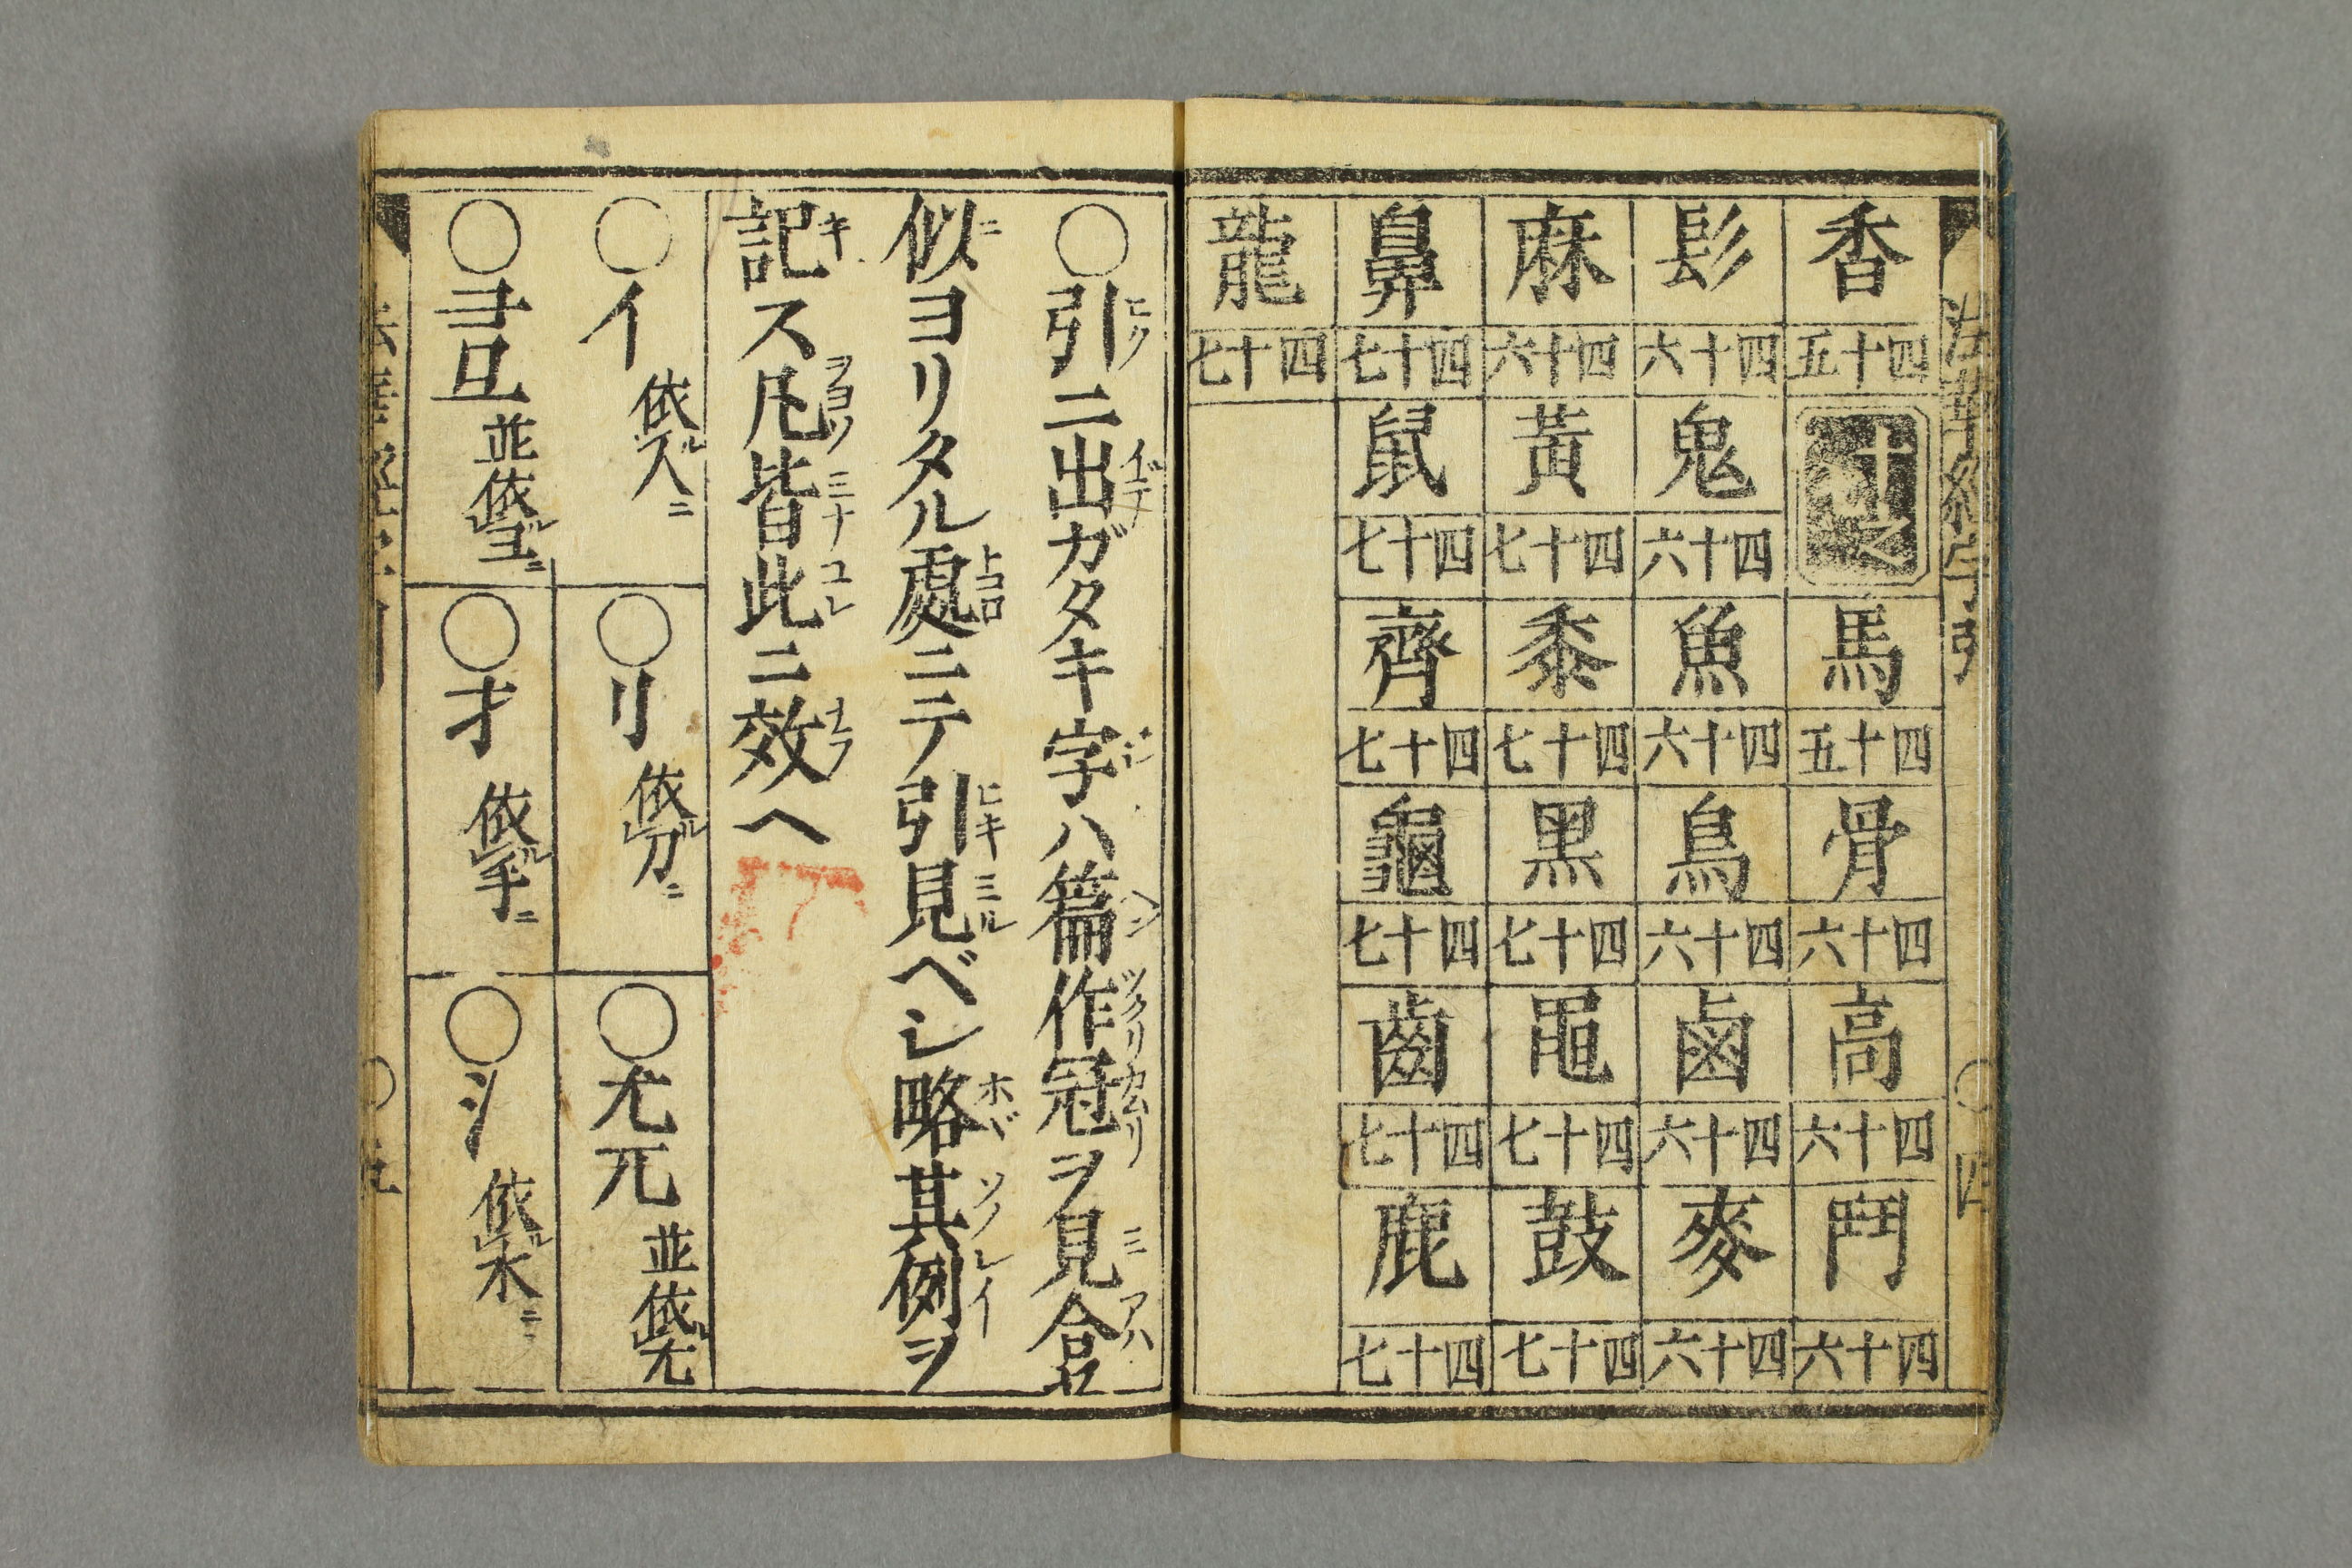 法華經字引 〇四
香 四十五 十之 馬 四十五 骨 四十六 高 四十六 鬥 四十六
髟 四十六 鬼 四十六 魚 四十六 鳥 四十六 鹵 四十六 麥 四十六
麻 四十六 黃 四十七 黍 四十七 黒 四十七 黽 四十七 鼓 四十七
鼻 四十七 鼠 四十七 齊 四十七 龜 四十七 齒 四十七 鹿 四十七
龍 四十七
〇引ニ出ガタキ字ハ篇作冠ヲ見合セ
似ヨリタル處ニテ引見ベシ略其例ヲ
記ス凡皆此ニ效ヘ
〇亻 依ル人ニ 〇刂 依ルレ刀ニ 〇尤兀 並依ルレ尢
〇彐彑 並依ルレ彐ニ 〇扌 依ルレ手ニ 〇氵 依ルレ水ニ